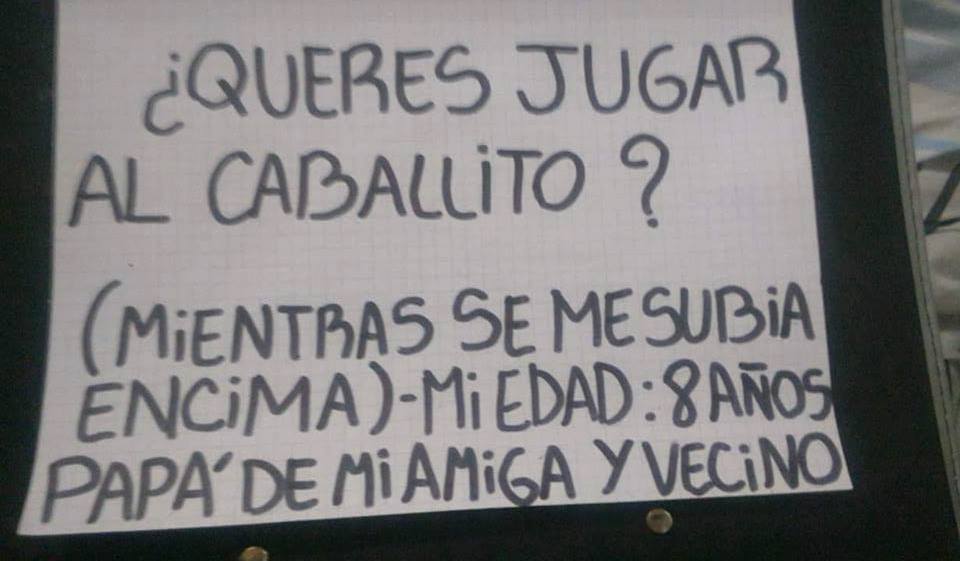 ¿QUERES JUGAR
AL CABALLITO?
(MIENTRAS SE ME SUBIA
ENCIMA)-MI EDAD: 8 AÑOS
PAPÁ DE MI AMIGA Y VECINO